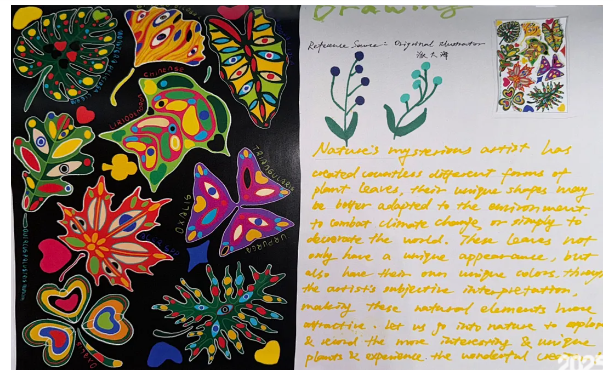 Drawing
Reference Source: Origional illustrator
Nature's mysterious artist has
created countless different forms of
plant leaves, their unique shapes may
be better adapted to the environment,
to combat climate change, or simply to
decorate the world. These leaves not
only have a unique appearance, but
also have their own unique colors, through
the artist's subjective interpretation,
making these natural elements more
attractive. Let us go into nature to explore
& record the more interesting & unique
plants & experience the wonderful
LIRIODENDRON
CHINENSE
TRIANGULARIS